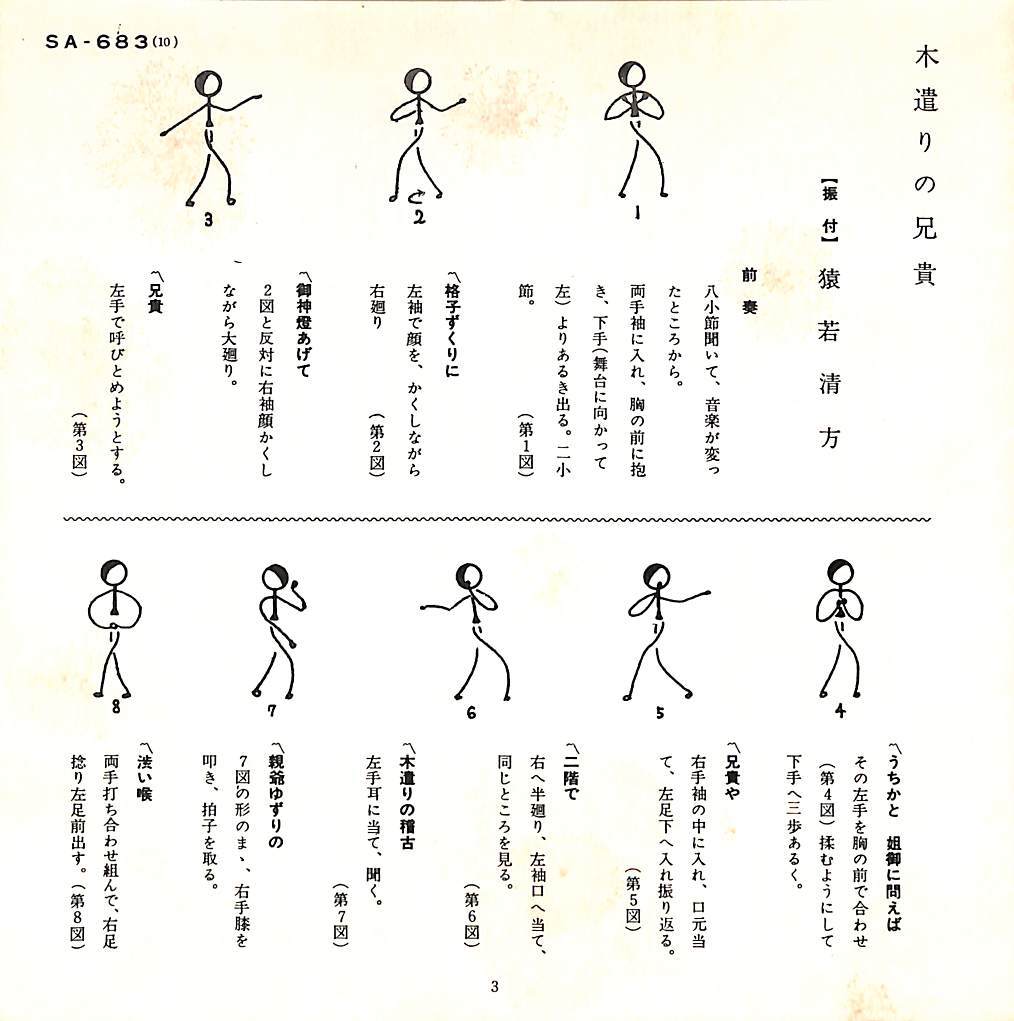 SA-683(10)
木遣りの兄貴
【振付】猿若清方
前奏
八小節聞いて、音楽が変っ
たところから。
両手袖に入れ、胸の前に抱
き、下手(舞台に向かって
左)よりあるき出る。二小
節。
(第1図)
〽格子ずくりに
左袖で顔を、かくしながら
右廻り
(第2図)
〽御神燈あげて
2図と反対に右袖顔かくし
ながら大廻り。
〽兄貴
左手で呼びとめようとする。
(第3図)
1
2
3
〽うちかと 姐御に問えば
その左手を胸の前で合わせ
(第4図)揉むようにして
下手へ三歩あるく。
〽兄貴や
右手袖の中に入れ、口元当
て、左足下へ入れ振り返る。
(第5図)
〽二階で
右へ半廻り、左袖口へ当て、
同じところを見る。
(第6図)
〽木遣りの稽古
左手耳に当て、聞く。
(第7図)
〽親爺ゆずりの
7図の形のまゝ、右手膝を
叩き、拍子を取る。
〽渋い喉
両手打ち合わせ組んで、右足
捻り左足前出す。(第8図)
4
5
6
7
8
3